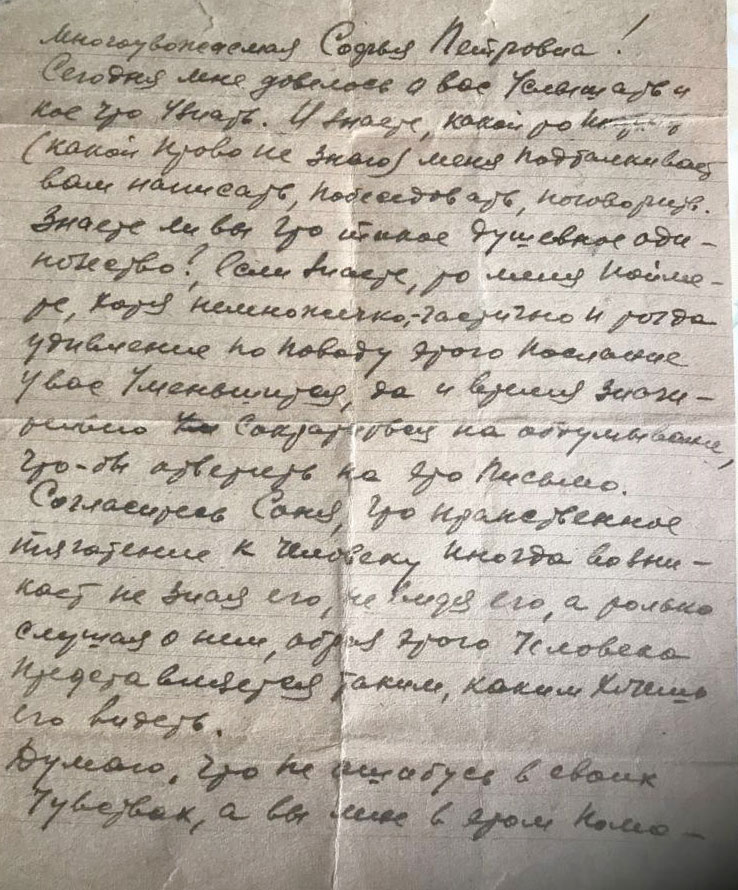 Многоуважаемая Софья Петровна!
Сегодня мне довелось о вас услышать и
кое что узнать. И знаете, какой то
(какой право не знаю) меня подталкивает
вам написать, побеседовать, поговорить.
Знаете ли вы что такое душевное оди-
ночество? Если знаете, то меня пойме-
те, хотя немножечко, частично и тогда
удивление по поводу этого послание
у вас уменьшится, да и время значи-
тельно сократится на обдумывание,
что-бы ответить на это письмо.
Согласитесь Соня, что нравственное
тяготение к человеку иногда возни-
кает не зная его, не видя его, а только
слушая о нем, образ этого человека
представляется таким, каким хочешь
его видеть.
Думаю, что не ошибусь в своих
чувствах, а вы мне в этом помо-